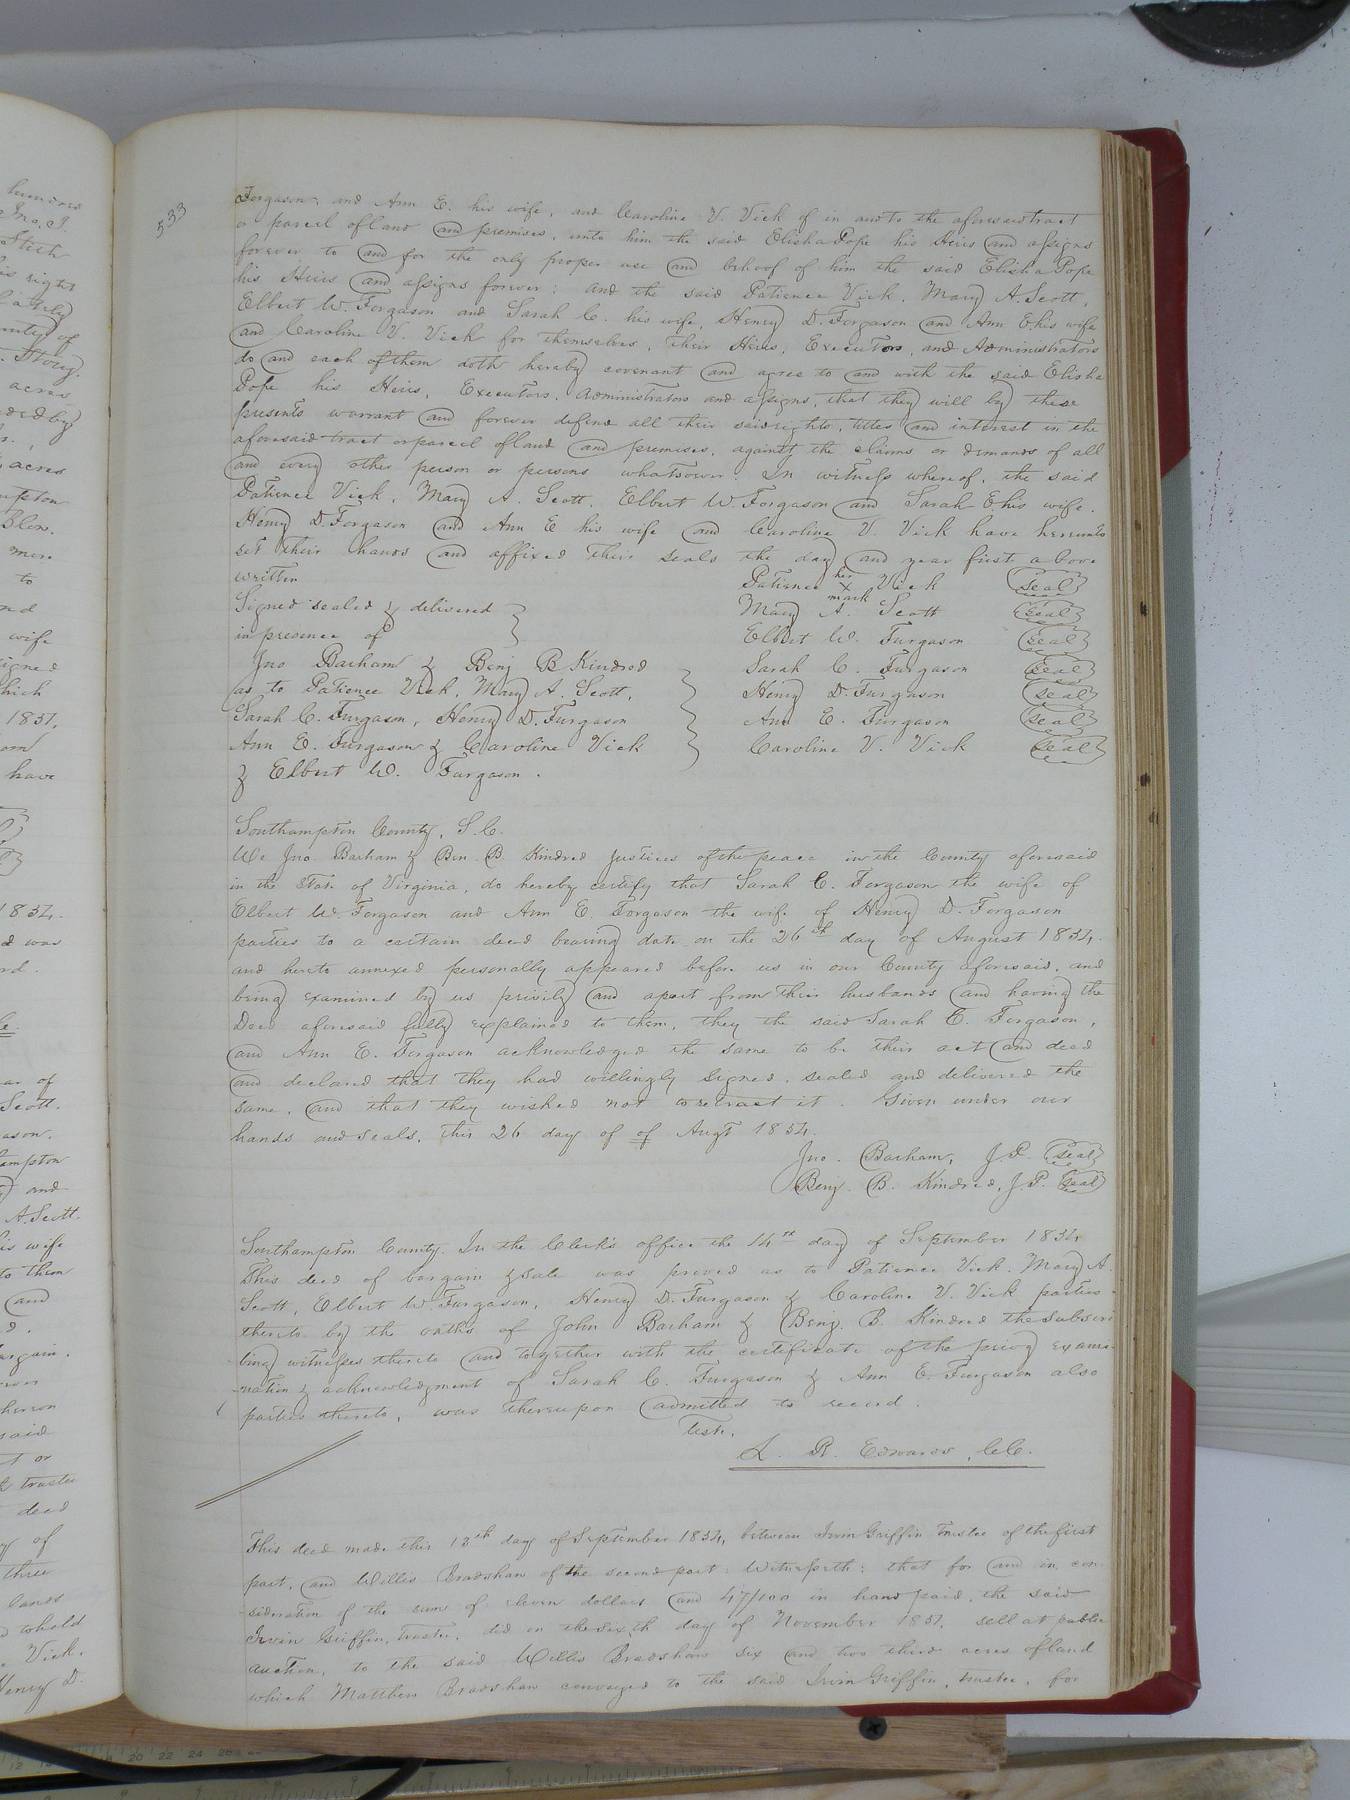 533
Forgason, and Ann E. his wife, and Caroline V. Vick of in and to the aforesaid tract
or parcel of land and premises, unto him the said Elisha Pope his Heirs and assigns
forever, to and for the only proper use and behoof of him the said Elisha Pope
his Heirs and assigns forever: and the said Patience Vick, Mary A. Scott,
Elbert W. Forgason and Sarah C. his wife, Henry D. Forgason and Ann E. his wife
and Caroline V. Vick for themselves, their Heirs, Executors, and Administrators
do and each of them doth hereby covenant and agree to and with the said Elisha
Pope his Heirs, Executors, Administrators and assigns, that they will by these
presents warrant and forever defend all their said rights, titles and interest in the
aforesaid tract or parcel of land and premises, against the claims or demands of all
and every other person or persons whatsover. In witness whereof, the said
Patience Vick, Mary A. Scott, Elbert W. Forgason and Sarah E his wife.
Henry D. Forgason and Ann E his wife and Caroline V. Vick have hereunto
set their hands and affixed their seals the day and year first above
written
Patience her X mark Vick seal
Signed sealed & delivered
Mary A. Scott seal
in presence of
Elbert W. Furgason seal
Jno Barham & Benj B Kindred
Sarah C. Furgason seal
as to Patience Vick, Mary A. Scott,
Henry D. Furgason seal
Sarah C. Furgason, Henry D. Furgason
Ann E. Furgason seal
Ann E. Furgason & Caroline Vick
Caroline V. Vick seal
& Elbert W. Furgason.
Southampton County, S.C.
We Jno. Barham & Ben. B. Kindred Justices of the peace in the County aforesaid
in the State of Virginia, do hereby certify that Sarah C. Forgason the wife of
Elbert W. Forgason and Ann E. Forgason the wife of Henry D. Forgason
parties to a certain deed bearing date on the 26th day of August 1854.
and hereto annexed personally appeared before us in our County aforesaid, and
being examined by us privily and apart from their husbands and having the
Deed aforesaid fully explained to them, they the said Sarah E. Forgason,
and Ann E. Forgason acknowledged the same to be their act and deed
and declared that they had willingly signed, sealed and delivered the
same, and that they wished not to retract it. Given under our
hands and seals. This 26 day of of Augt 1854.
Jno. Barham, J.P. seal
Benj. B. Kindred, J.P. seal
Southampton County. In the Clerk's office the 14th day of September 1854
This deed of bargain & sale was proved as to Patience Vick. Mary A.
Scott, Elbert W. Furgason, Henry D. Furgason & Caroline V. Vick parties
thereto by the oaths of John Barham & Benj. B. Kindred the subscri
bing witnesses thereto and together with the certificate of the privy exami-
-nation & acknowledgment of Sarah C. Furgason & Ann E. Furgason also
parties thereto, was thereupon admitted to record.
Test,
L. R. Edwards, C.C.
This deed made this 13th day of September 1854, between Irvin Griffin Trustee of the first
part, and Willis Bradshaw of the second part: Witnesseth: that for and in con-
sideration of the sum of eleven dollars and 47/100 in hand paid, the said
Irvin Griffin, trustee, did on the sixth day of November 1851, sell at public
auction, to the said Willis Bradshaw six and two third acres of land
which Matthew Bradshaw conveyed to the said Irvin Griffin, trustee, for